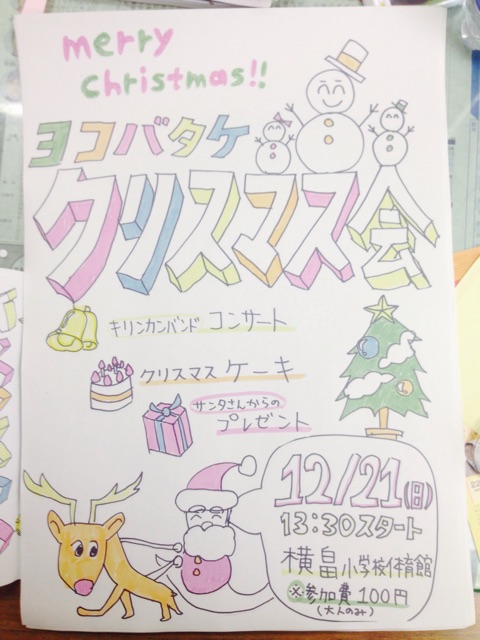 merry
christmas!!
ヨコバタケ
クリスマス会
キリンカンバンド コンサート
クリスマス ケーキ
サンタさんからの
プレゼント
12/21(日)
13:30スタート
横畠小学校体育館
※参加費100円
(大人のみ)